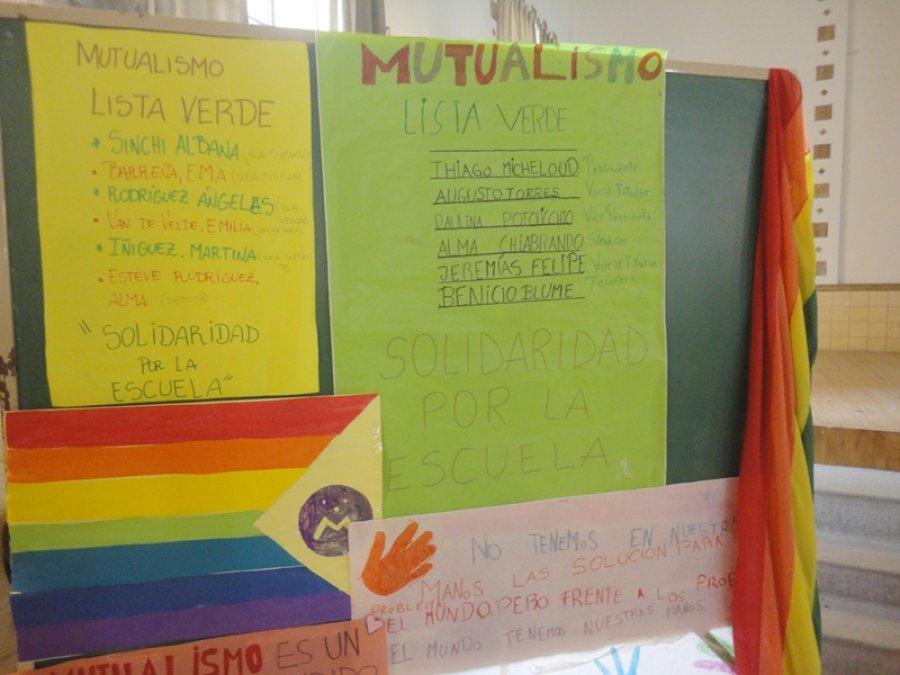 MUTUALISMO
LISTA VERDE
SINCHI ALBANA
BARREÑA, EMA
RODRÍGUEZ ÁNGELES
VAN DE VELDE, EMILIA
IÑIGUEZ, MARTINA
ESTEVE RODRÍGUEZ,
ALMA
"SOLIDARIDAD
POR LA
ESCUELA"
MUTUALISMO
LISTA VERDE
THIAGO MICHELOUD Presidente
AUGUSTO TORRES Vocal Titular
PAULINA POTOLICCHIO
ALMA CHIABRANDO Síndicos
JEREMÍAS FELIPE Vocal Titular
BENICIO BLUME Tesorero
SOLIDARIDAD
POR LA
ESCUELA
M
NO TENEMOS EN NUESTRA
MANOS LAS SOLUCIÓN PARA
PROBLEMA
DEL MUNDO, PERO FRENTE A LOS PROB
DEL MUNDO TENEMOS NUESTRAS MANOS.
MUTUALISMO ES UN